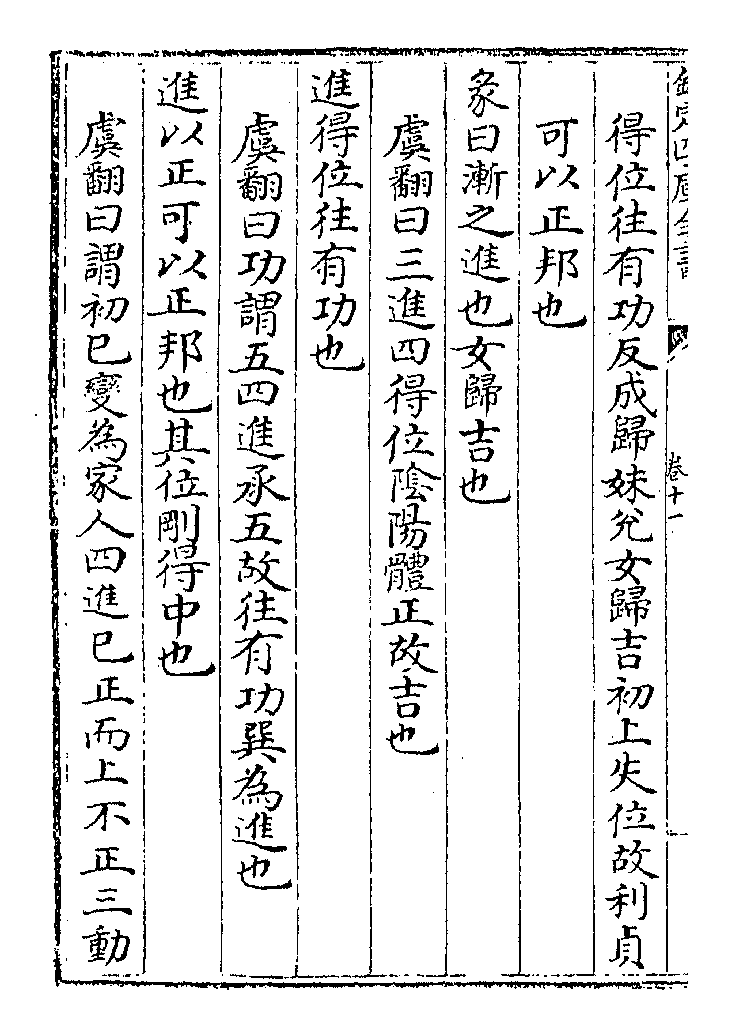 欽定四庫全書
卷十一
得位往有功反成歸妹兊女歸吉初上失位故利貞
可以正邦也
彖曰漸之進也女歸吉也
虞翻曰三進四得位陰陽體正故吉也
進得位往有功也
虞翻曰功謂五四進承五故往有功巽為進也
進以正可以正邦也其位剛得中也
虞翻曰謂初已變為家人四進已正而上不正三動